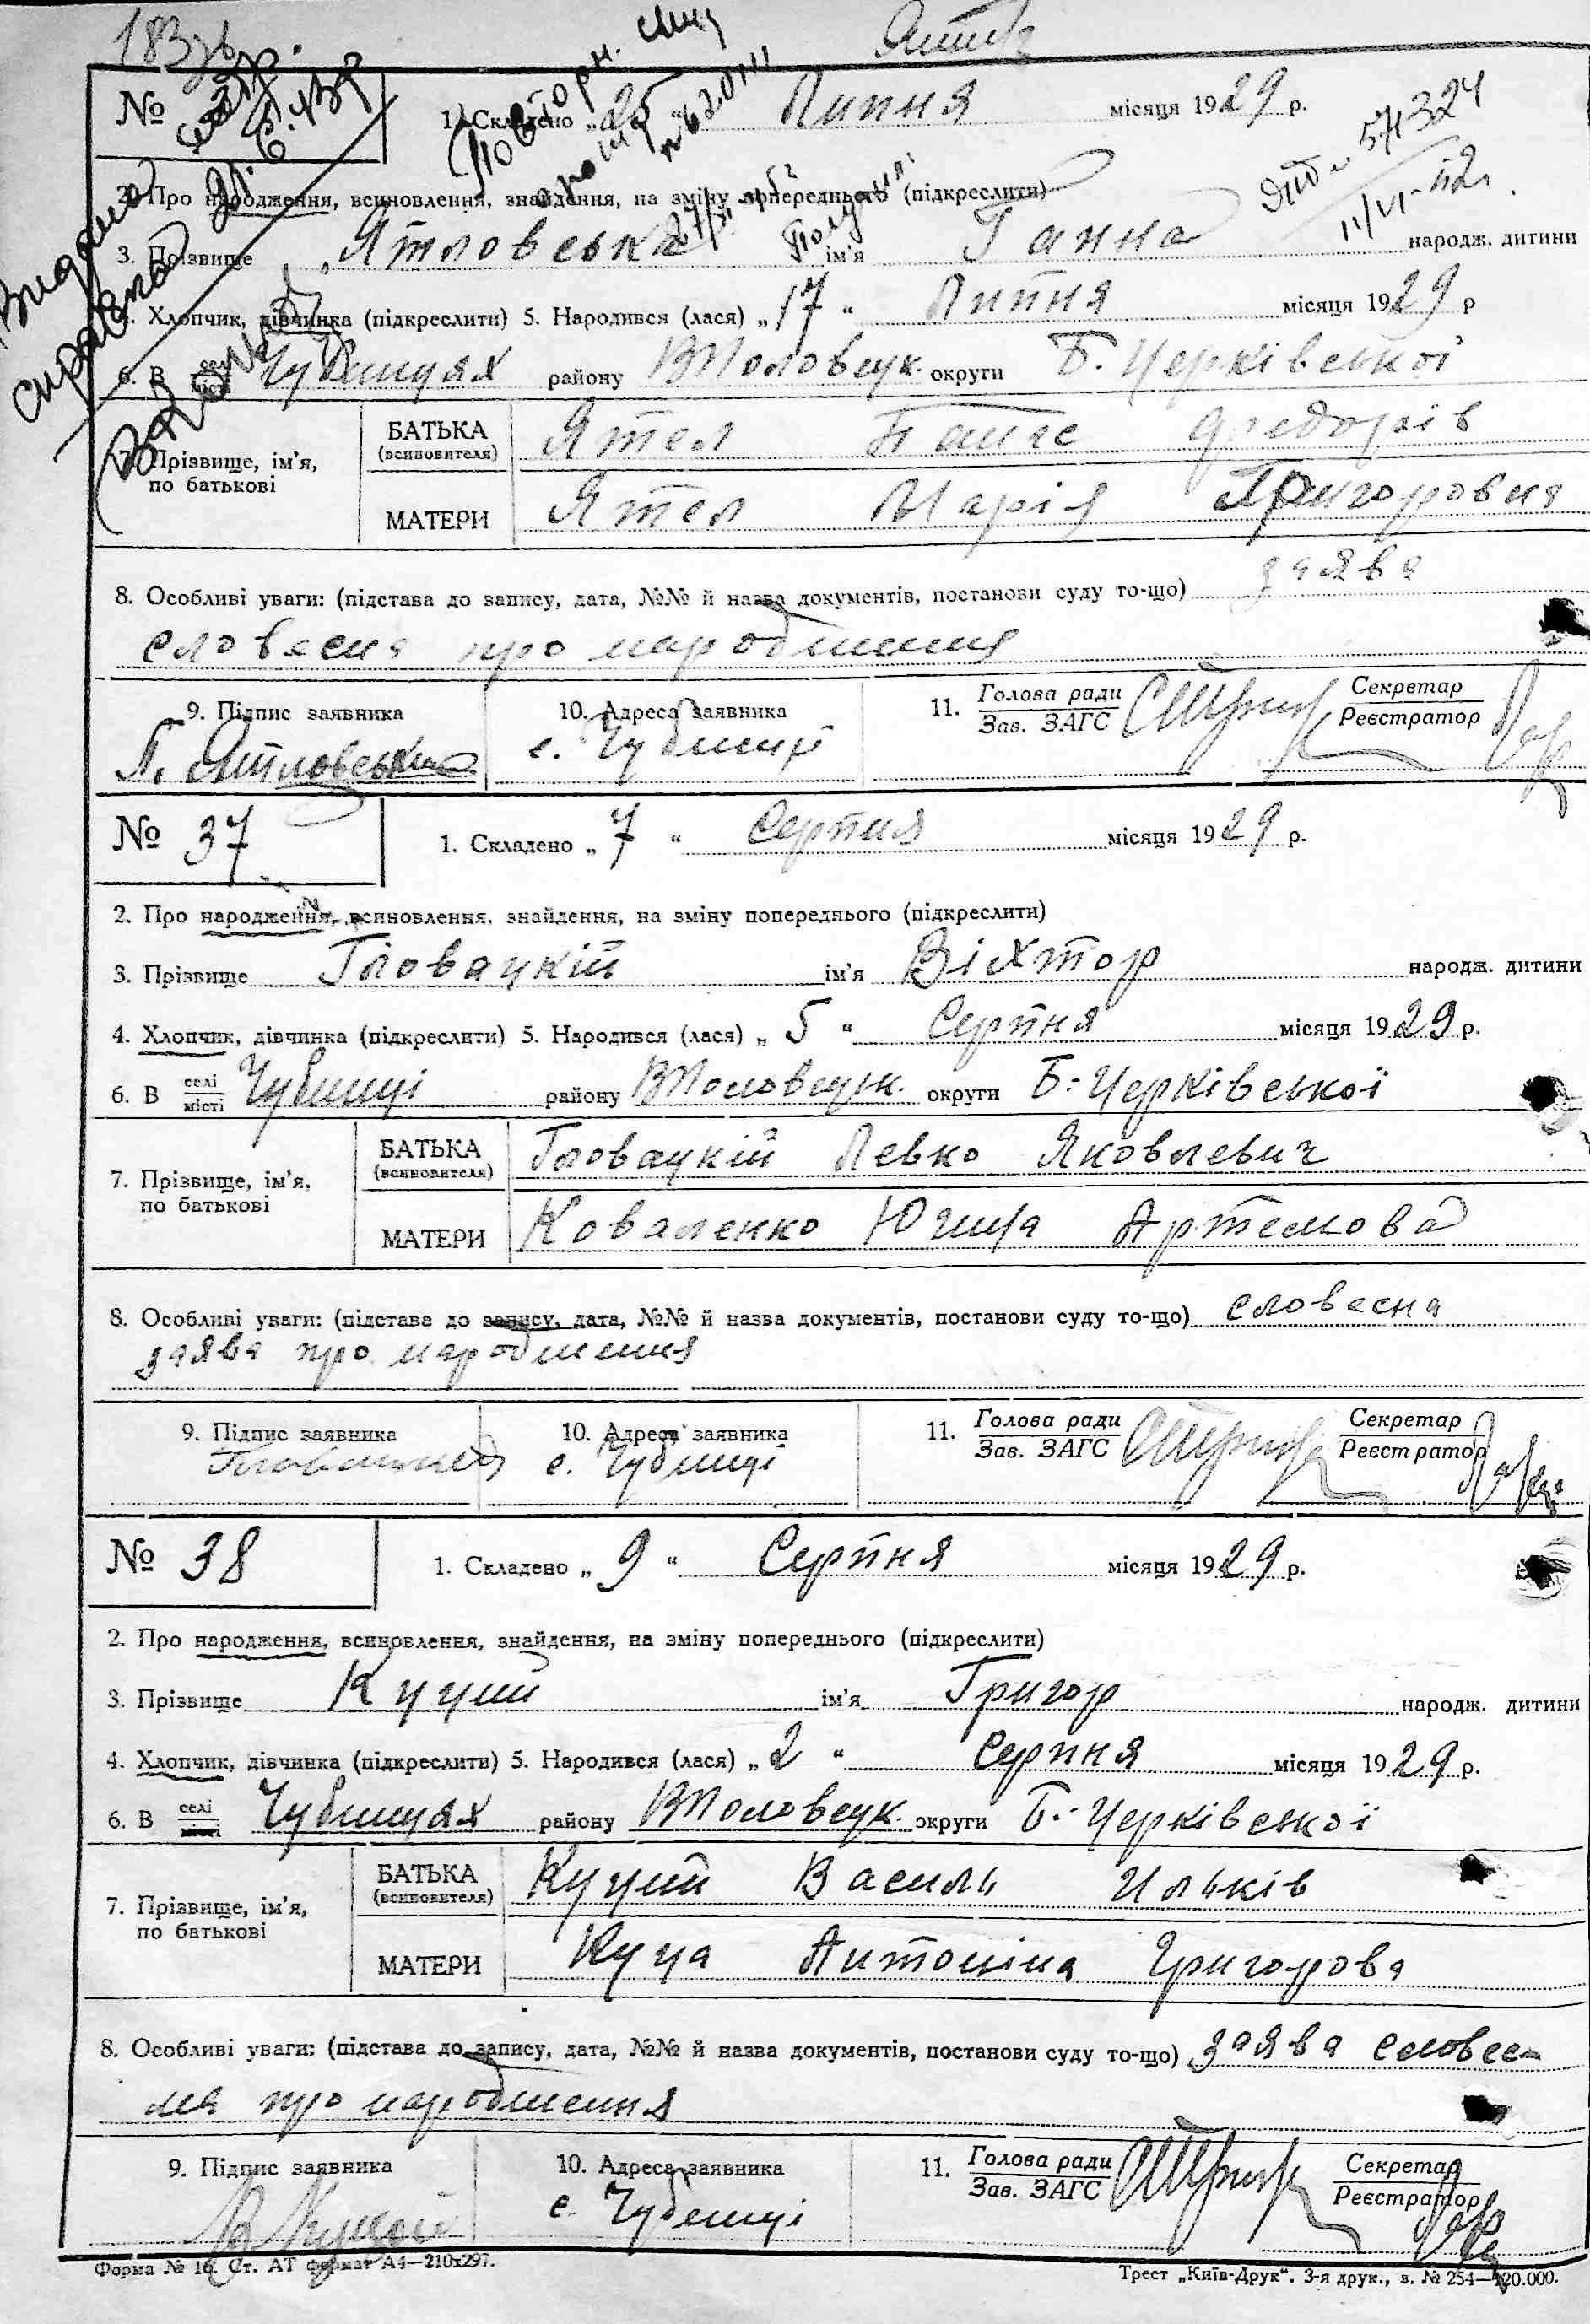 №
1. Складено „ 25 “ Липня місяця 1929 р.
2. Про народження, всиновлення, знайдення, на зміну попереднього (підкреслити)
3. Прізвище Ятловська ім'я Ганна народж. дитини
4. Хлопчик, дівчинка (підкреслити) 5. Народився (лася) „ 17 “ Липня місяця 1929 р
6. В селі/місті Чубинцях району ВПоловецк. округи Б. Черківської
7. Прізвище, ім'я, по батькові
БАТЬКА (всиновителя) Ятел Панас Федорів
МАТЕРИ Ятел Марія Григоровна
8. Особливі уваги: (підстава до запису, дата, №№ й назва документів, постанови суду то-що) заява
словесна про народження
9. Підпис заявника 10. Адреса заявника 11. Голова ради/Зав. ЗАГС Секретар/Реєстратор
П. Ятловський с. Чубинці
№ 37
1. Складено „ 7 “ Серпня місяця 1929 р.
2. Про народження, всиновлення, знайдення, на зміну попереднього (підкреслити)
3. Прізвище Гловацкій ім'я Віхтор народж. дитини
4. Хлопчик, дівчинка (підкреслити) 5. Народився (лася) „ 5 “ Серпня місяця 1929 р.
6. В селі/місті Чубинці району ВПоловецк. округи Б-Черківської
7. Прізвище, ім'я, по батькові
БАТЬКА (всиновителя) Гловацкій Левко Яковлевич
МАТЕРИ Коваленко Югина Артемова
8. Особливі уваги: (підстава до запису, дата, №№ й назва документів, постанови суду то-що) словесна
заява про народження
9. Підпис заявника 10. Адреса заявника 11. Голова ради/Зав. ЗАГС Секретар/Реєстратор
с. Чубинці
№ 38
1. Складено „ 9 “ Серпня місяця 1929 р.
2. Про народження, всиновлення, знайдення, на зміну попереднього (підкреслити)
3. Прізвище Куций ім'я Григор народж. дитини
4. Хлопчик, дівчинка (підкреслити) 5. Народився (лася) „ 2 “ Серпня місяця 1929 р.
6. В селі/місті Чубинцях району ВПоловецк. округи Б-Черківської
7. Прізвище, ім'я, по батькові
БАТЬКА (всиновителя) Куций Василь Ильків
МАТЕРИ Куца Антоніна Григорова
8. Особливі уваги: (підстава до запису, дата, №№ й назва документів, постанови суду то-що) заява словес-
на про народження
9. Підпис заявника 10. Адреса заявника 11. Голова ради/Зав. ЗАГС Секретар/Реєстратор
с. Чубинці
Форма № 16. Ст. АТ формат А4—210х297.
Трест „Київ-Друк“. 3-я друк., з. № 254—120.000.